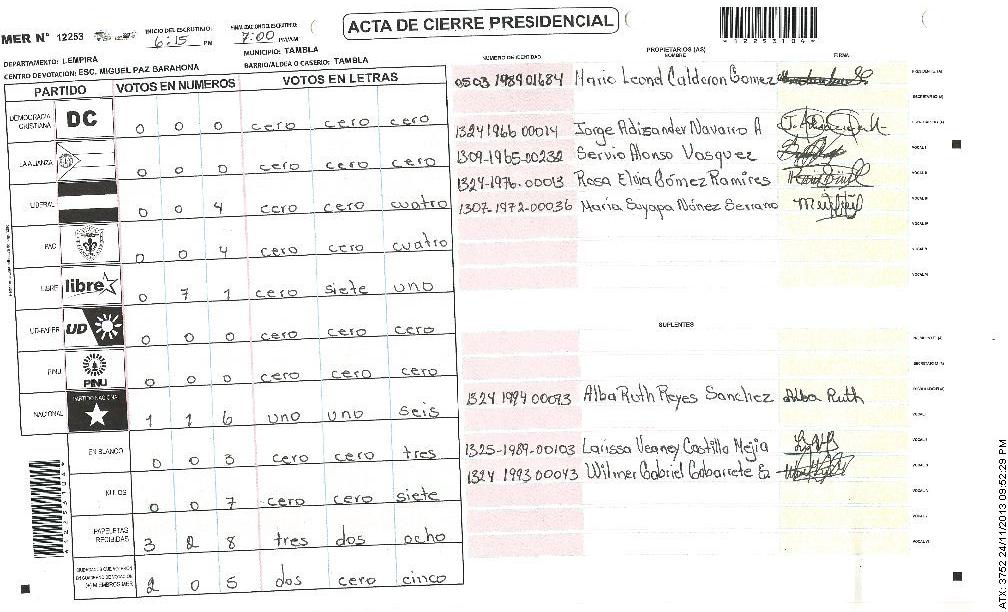 ACTA DE CIERRE PRESIDENCIAL
MER N° 12253
INICIO DEL ESCRUTINIO: 6:15 PM
FINALIZACION DEL ESCRUTINIO: 7:00 PM/AM
*12253104*
DEPARTAMENTO: LEMPIRA
MUNICIPIO: TAMBLA
CENTRO DE VOTACION: ESC. MIGUEL PAZ BARAHONA
BARRIO/ALDEA O CASERIO: TAMBLA
PARTIDO VOTOS EN NUMEROS VOTOS EN LETRAS
DEMOCRACIA CRISTIANA DC 0 0 0 cero cero cero
LA ALIANZA 0 0 0 cero cero cero
LIBERAL 0 0 4 cero cero cuatro
PAC 0 0 4 cero cero cuatro
LIBRE libre 0 7 1 cero siete uno
UD-FAPER UD 0 0 0 cero cero cero
PINU PINU 0 0 0 cero cero cero
NACIONAL PARTIDO NACIONAL 1 1 6 uno uno seis
EN BLANCO 0 0 3 cero cero tres
NULOS 0 0 7 cero cero siete
PAPELETAS RECIBIDAS 3 2 8 tres dos ocho
2 0 5 dos cero cinco
NUMERO DE IDENTIDAD
PROPIETARIOS (AS)
NOMBRE
FIRMA
0503 1989 01684 Mario Leond Calderon Gomez
PRESIDENTE (A)
SECRETARIO (A)
1324 1966 00014 Jorge Adizander Navarro A
ESCRUTADOR (A)
1309-1965-00232 Servio Alonso Vasquez
VOCAL I
1324-1976-00013 Rosa Elvia Gómez Ramires
VOCAL II
1307-1972-00036 Maria Suyapa Núnez Serrano
VOCAL III
VOCAL IV
VOCAL V
VOCAL VI
SUPLENTES
PRESIDENTE (A)
SECRETARIO (A)
1324 1994 00093 Alba Ruth Reyes Sanchez Alba Ruth
ESCRUTADOR (A)
VOCAL I
1325-1989-00103 Larissa Veaney Castillo Mejia
VOCAL II
1324 1993 00043 Wilmer Gabriel Gabarrete
VOCAL III
VOCAL IV
VOCAL V
VOCAL VI
*12253104*
ATX: 3752 24/11/2013 09:52:29 PM